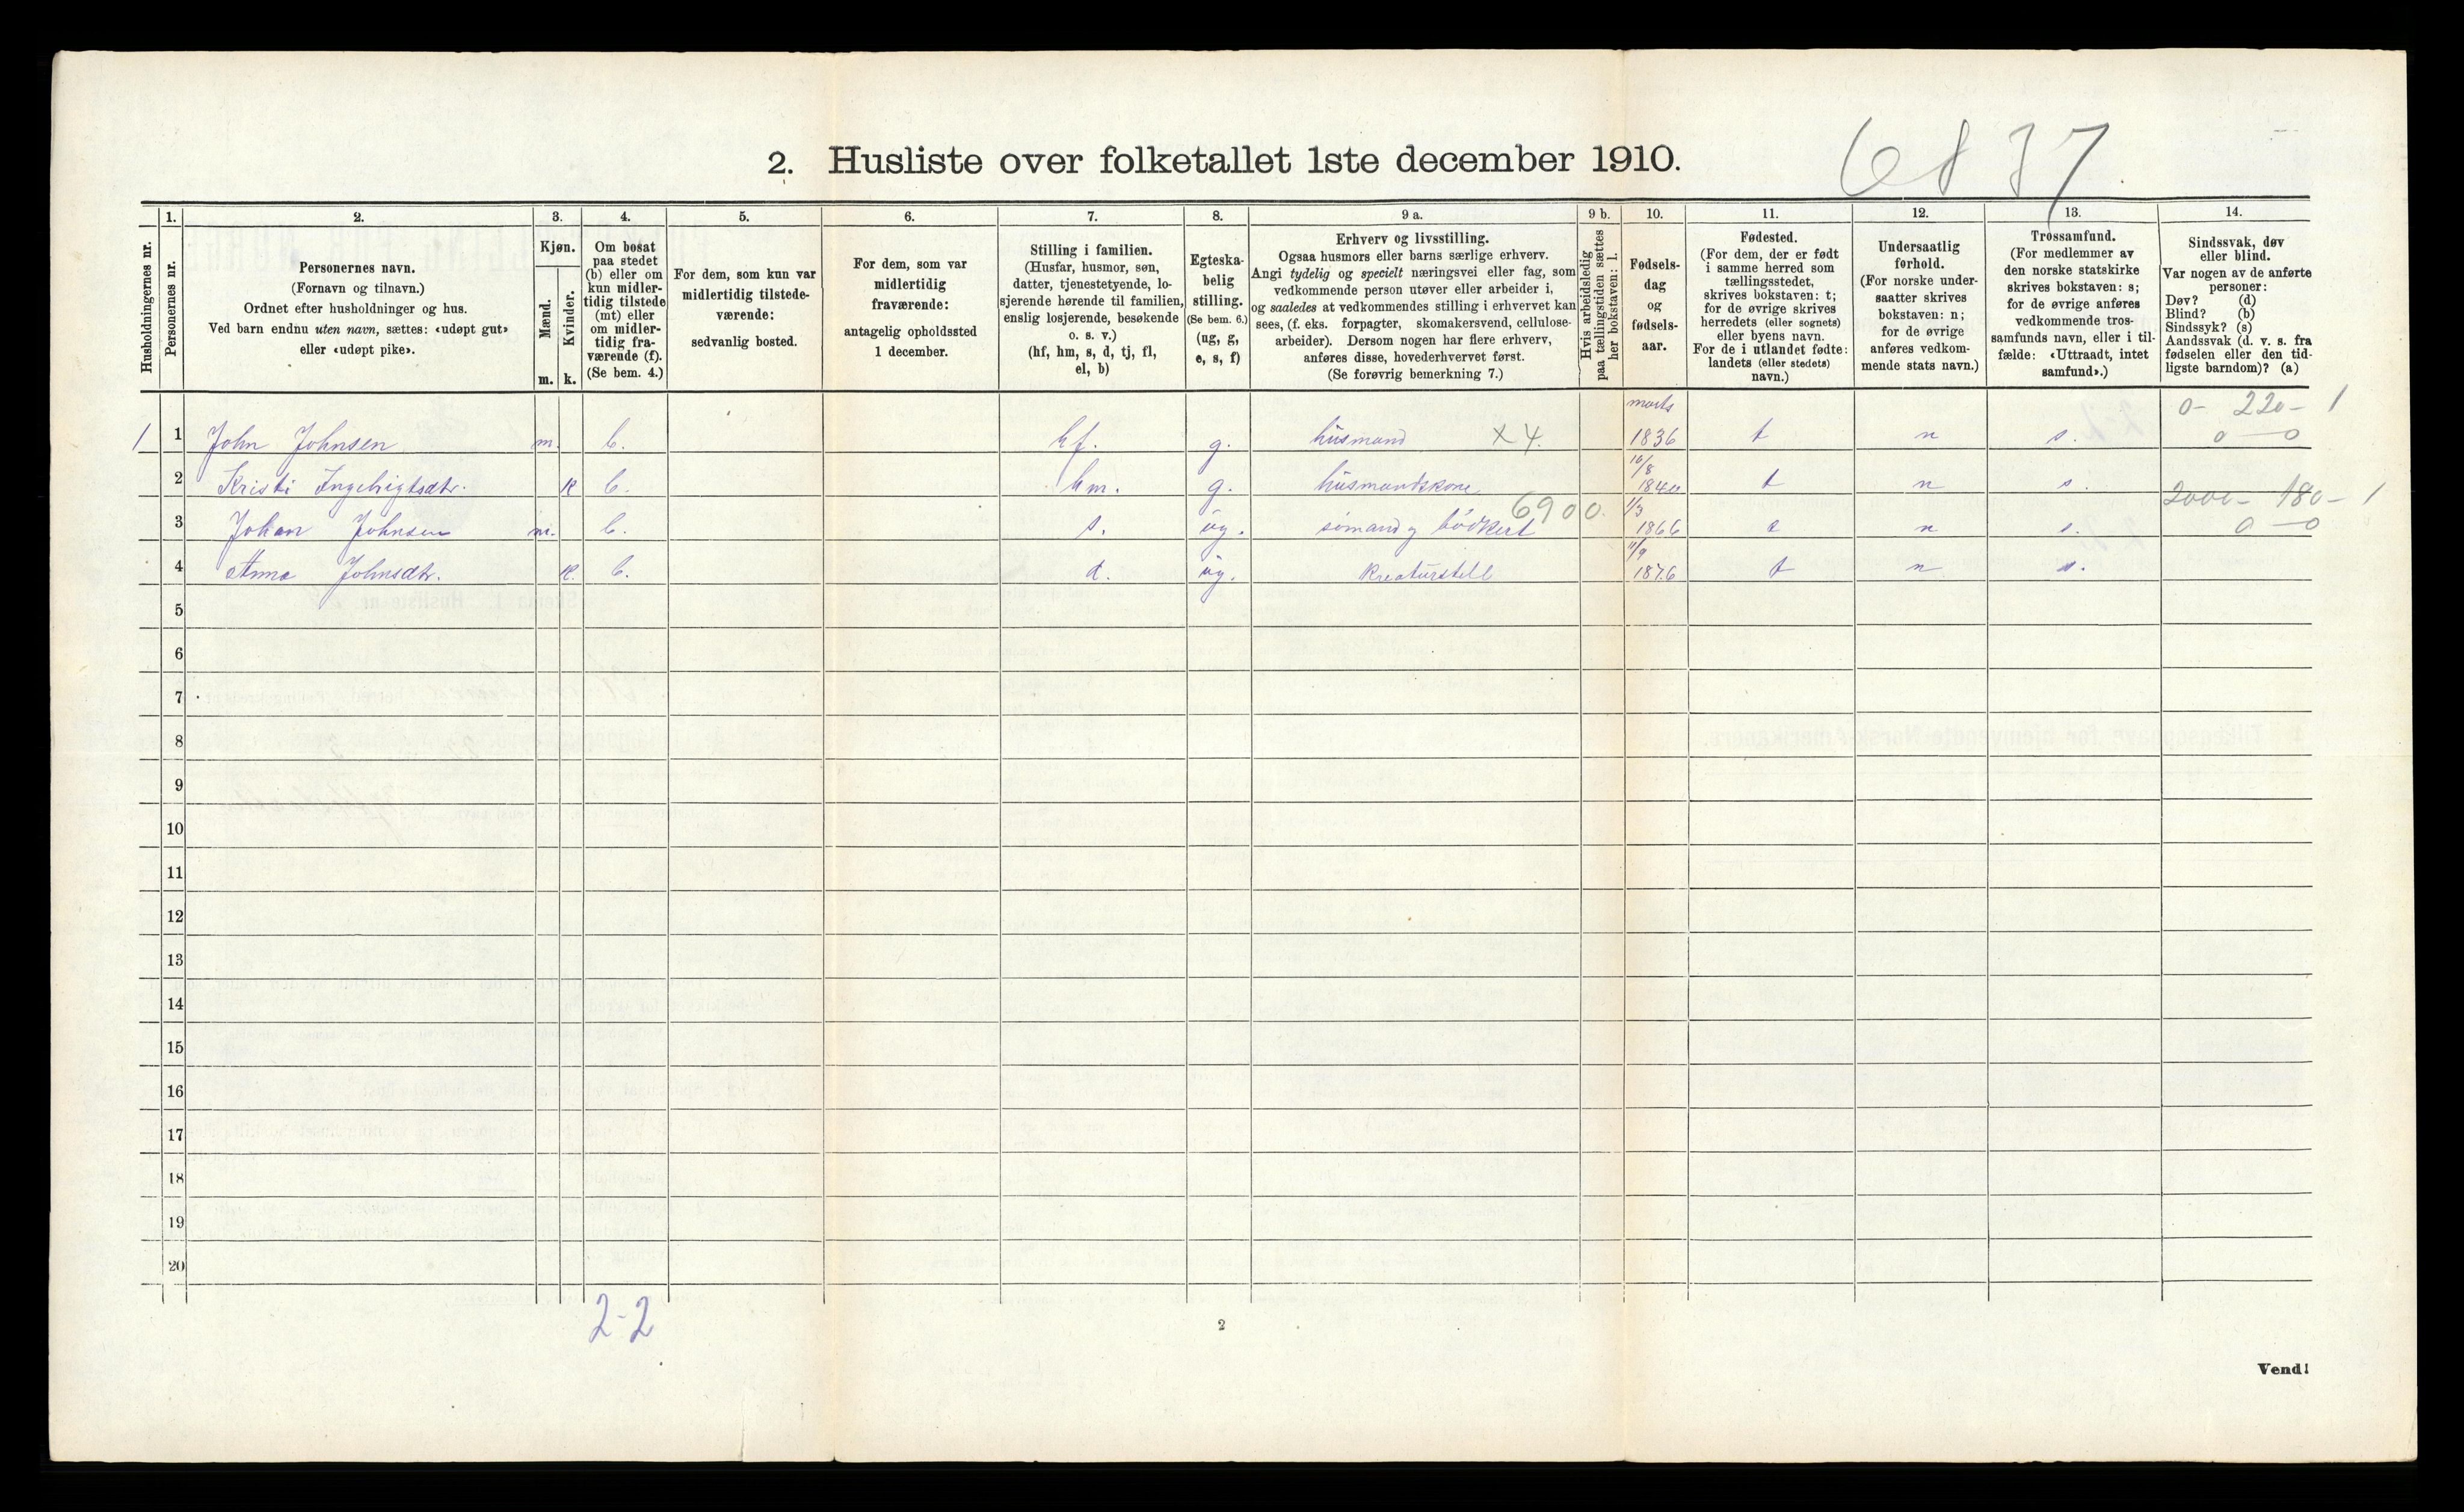 6837
2. Husliste over folketallet 1ste december 1910.
Husholdningernes nr.
1.
Personernes nr.
2.
Personernes navn.
(Fornavn og tilnavn.)
Ordnet efter husholdninger og hus.
Ved barn endnu uten navn, sættes: «udøpt gut»
eller «udøpt pike».
3.
Kjøn.
Mænd.
m.
Kvinder.
k.
4.
Om bosat
paa stedet
(b) eller om
kun midler-
tidig tilstede
(mt) eller
om midler-
tidig fra-
værende (f).
(Se bem. 4.)
5.
For dem, som kun var
midlertidig tilstede-
værende:
sedvanlig bosted.
6.
For dem, som var
midlertidig
fraværende:
antagelig opholdssted
1 december.
7.
Stilling i familien.
(Husfar, husmor, søn,
datter, tjenestetyende, lo-
sjerende hørende til familien,
enslig losjerende, besøkende
o. s. v.)
(hf, hm, s, d, tj, fl,
el, b)
8.
Egteska-
belig
stilling.
(Se bem. 6.)
(ug, g,
e, s, f)
9 a.
Erhverv og livsstilling.
Ogsaa husmors eller barns særlige erhverv.
Angi tydelig og specielt næringsvei eller fag, som
vedkommende person utøver eller arbeider i,
og saaledes at vedkommendes stilling i erhvervet kan
sees, (f. eks. forpagter, skomakersvend, cellulose-
arbeider). Dersom nogen har flere erhverv,
anføres disse, hovederhvervet først.
(Se forøvrig bemerkning 7.)
9 b.
Hvis arbeidsledig
paa tællingstiden sættes
her bokstaven: l.
10.
Fødsels-
dag
og
fødsels-
aar.
11.
Fødested.
(For dem, der er født
i samme herred som
tællingsstedet,
skrives bokstaven: t;
for de øvrige skrives
herredets (eller sognets)
eller byens navn.
For de i utlandet fødte:
landets (eller stedets)
navn.)
12.
Undersaatlig
forhold.
(For norske under-
saatter skrives
bokstaven: n;
for de øvrige
anføres vedkom-
mende stats navn.)
13.
Trossamfund.
(For medlemmer av
den norske statskirke
skrives bokstaven: s;
for de øvrige anføres
vedkommende tros-
samfunds navn, eller i til-
fælde: «Uttraadt, intet
samfund».)
14.
Sindssvak, døv
eller blind.
Var nogen av de anførte
personer:
Døv? (d)
Blind? (b)
Sindssyk? (s)
Aandssvak (d. v. s. fra
fødselen eller den tid-
ligste barndom)? (a)
marts 0- 220- 1
1 1 John Johnsen m. b. hf. g. husmand X4. 1836 t n s. 0 - 0
2 Kristi Ingebrigtsdtr. k b. hm. g. husmandskone 10/8 t n s.
6900. 2000- 180- 1
3 Johan Johnsen m. b. s. ug. sømand og bödkert 1/3 1866 t n s. 0 - 0
4 Anna Johnsdtr. k. b. d. ug. kreaturstell 11/9 1876 t n s.
5
6
7
8
9
10
11
12
13
14
15
16
17
18
19
20
2-2
2
Vend!